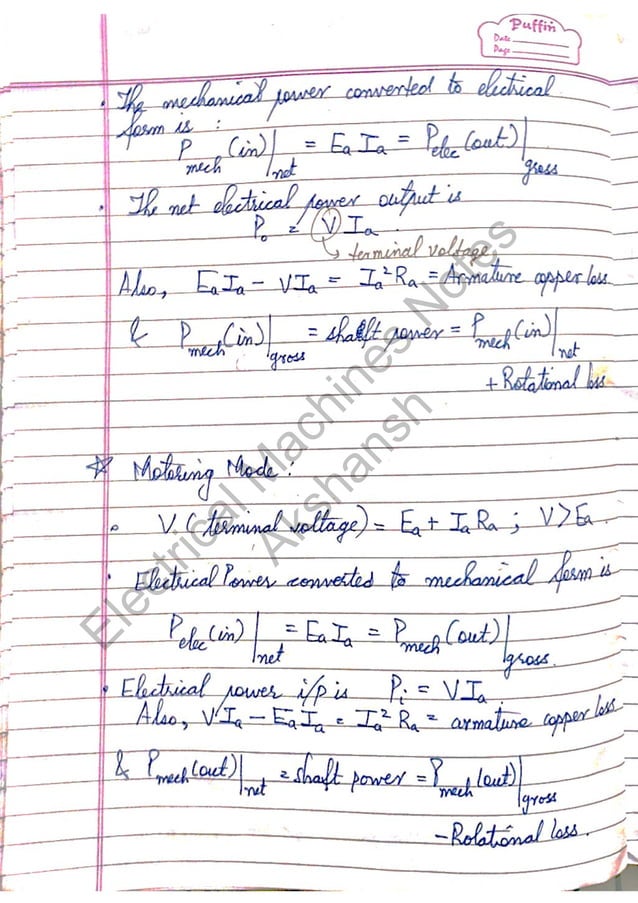 Puffin
Date
Page
• The mechanical power converted to electrical
form is :
P_mech (in)|_net = E_a I_a = P_elec (out)|_gross
• The net electrical power output is
P_o = V I_a .
↳ terminal voltage
Also, E_a I_a - V I_a = I_a² R_a = Armature copper loss
& P_mech (in)|_gross = shaft power = P_mech (in)|_net
+ Rotational loss
☆ Motoring Mode :
• V (terminal voltage) = E_a + I_a R_a ; V > E_a .
• Electrical Power converted to mechanical form is
P_elec (in)|_net = E_a I_a = P_mech (out)|_gross.
• Electrical power i/p is P_i = V I_a .
Also, V I_a - E_a I_a = I_a² R_a = armature copper loss
& P_mech (out)|_net = shaft power = P_mech (out)|_gross
- Rotational loss .
Electrical Machines Notes
Akshansh